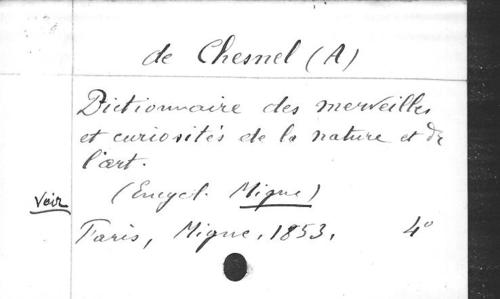 de Chesnel (A)
Dictionnaire des merveilles
et curiosités de la nature et de
l'art.
(Encycl. Migne)
voir
Paris, Migne, 1853. 4°